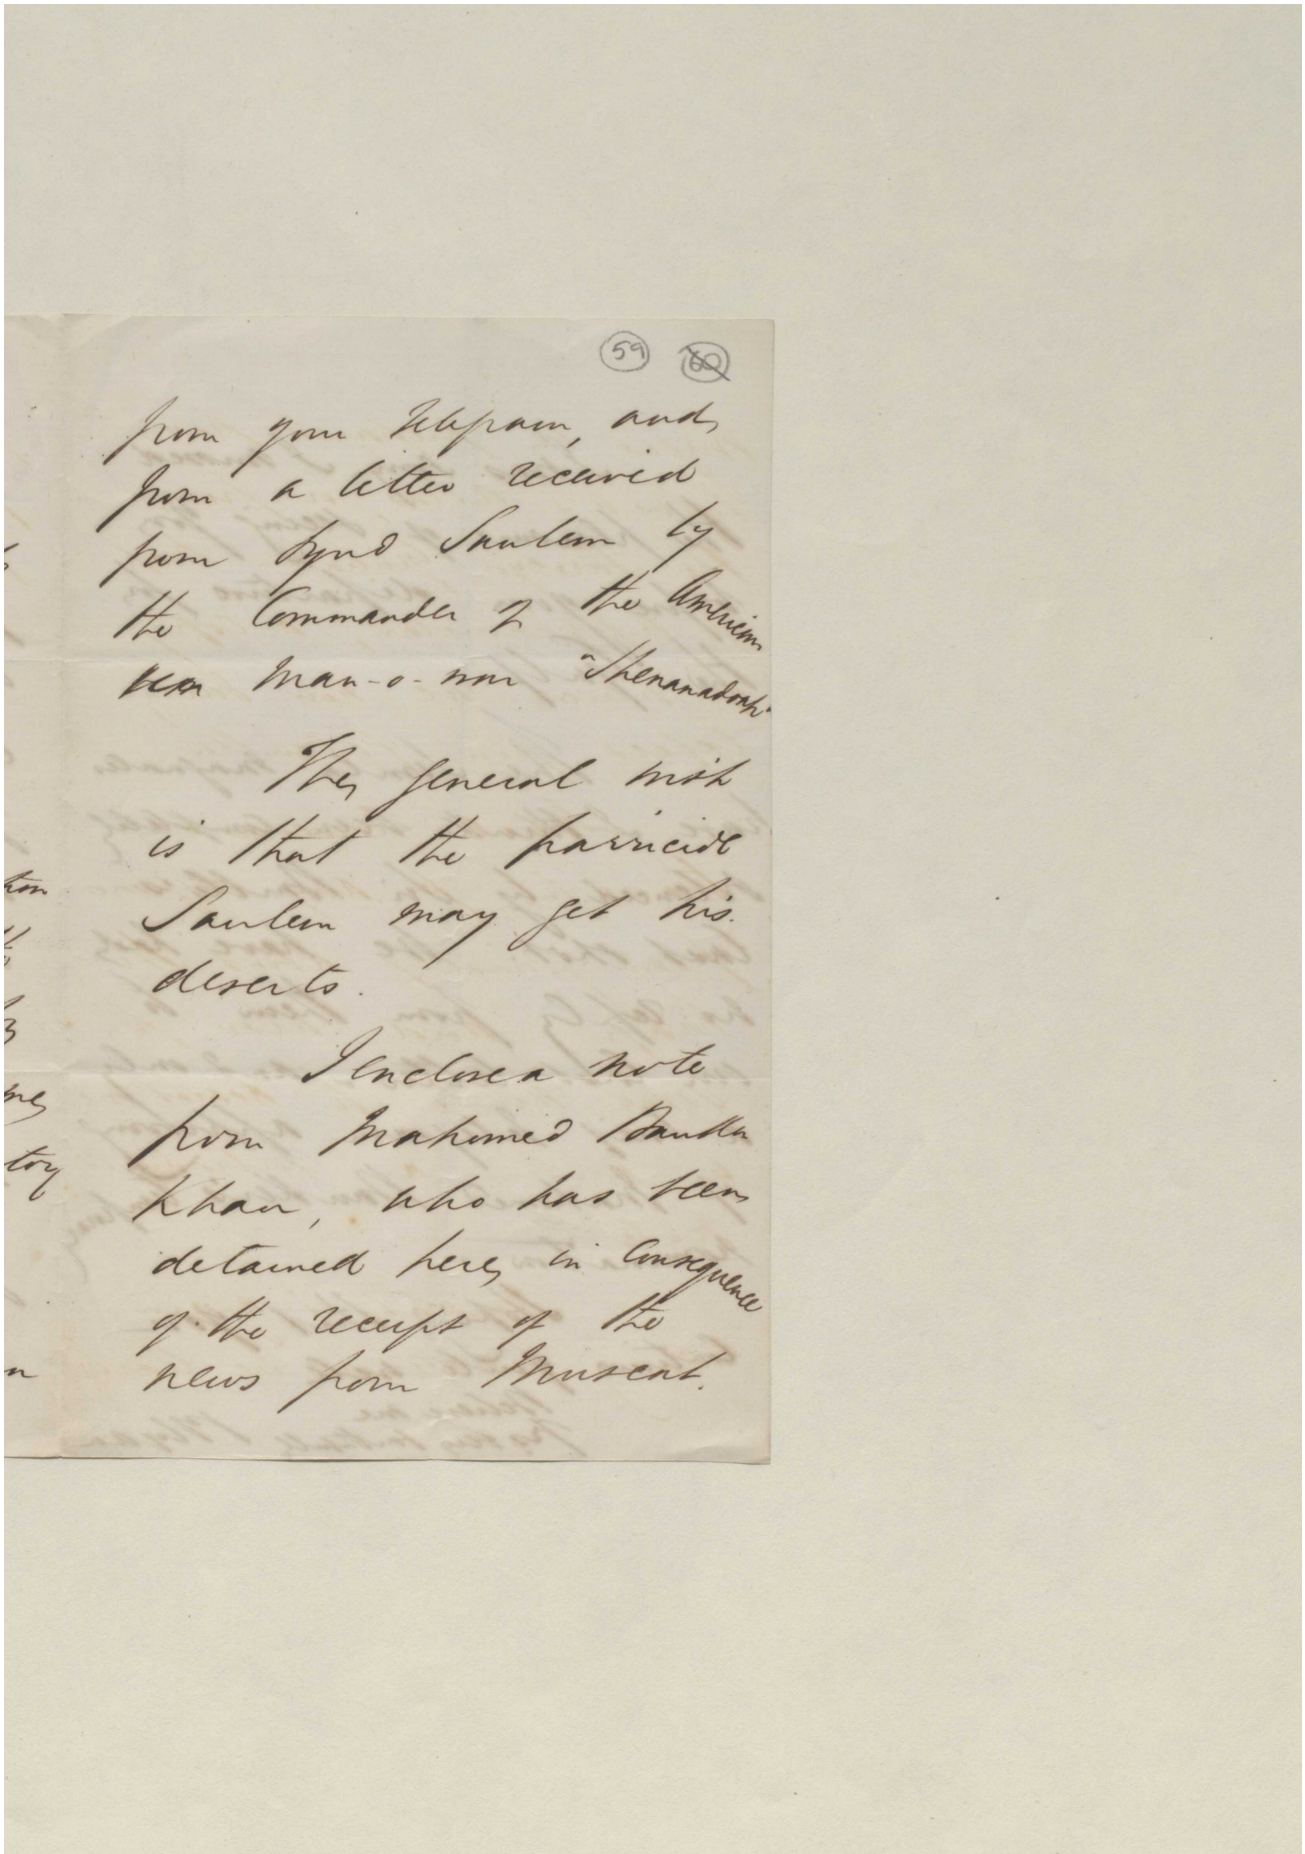 59 60
from your telegram, and
from a letter received
from Syud Saulem by
the Commander of the American
man-o-war "Shenanadoah"
The general wish
is that the parricide
Saulem may get his
deserts.
I enclose a note
from Mahomed Bauker
Khan, who has been
detained here, in consequence
of the receipt of the
news from Muscat.